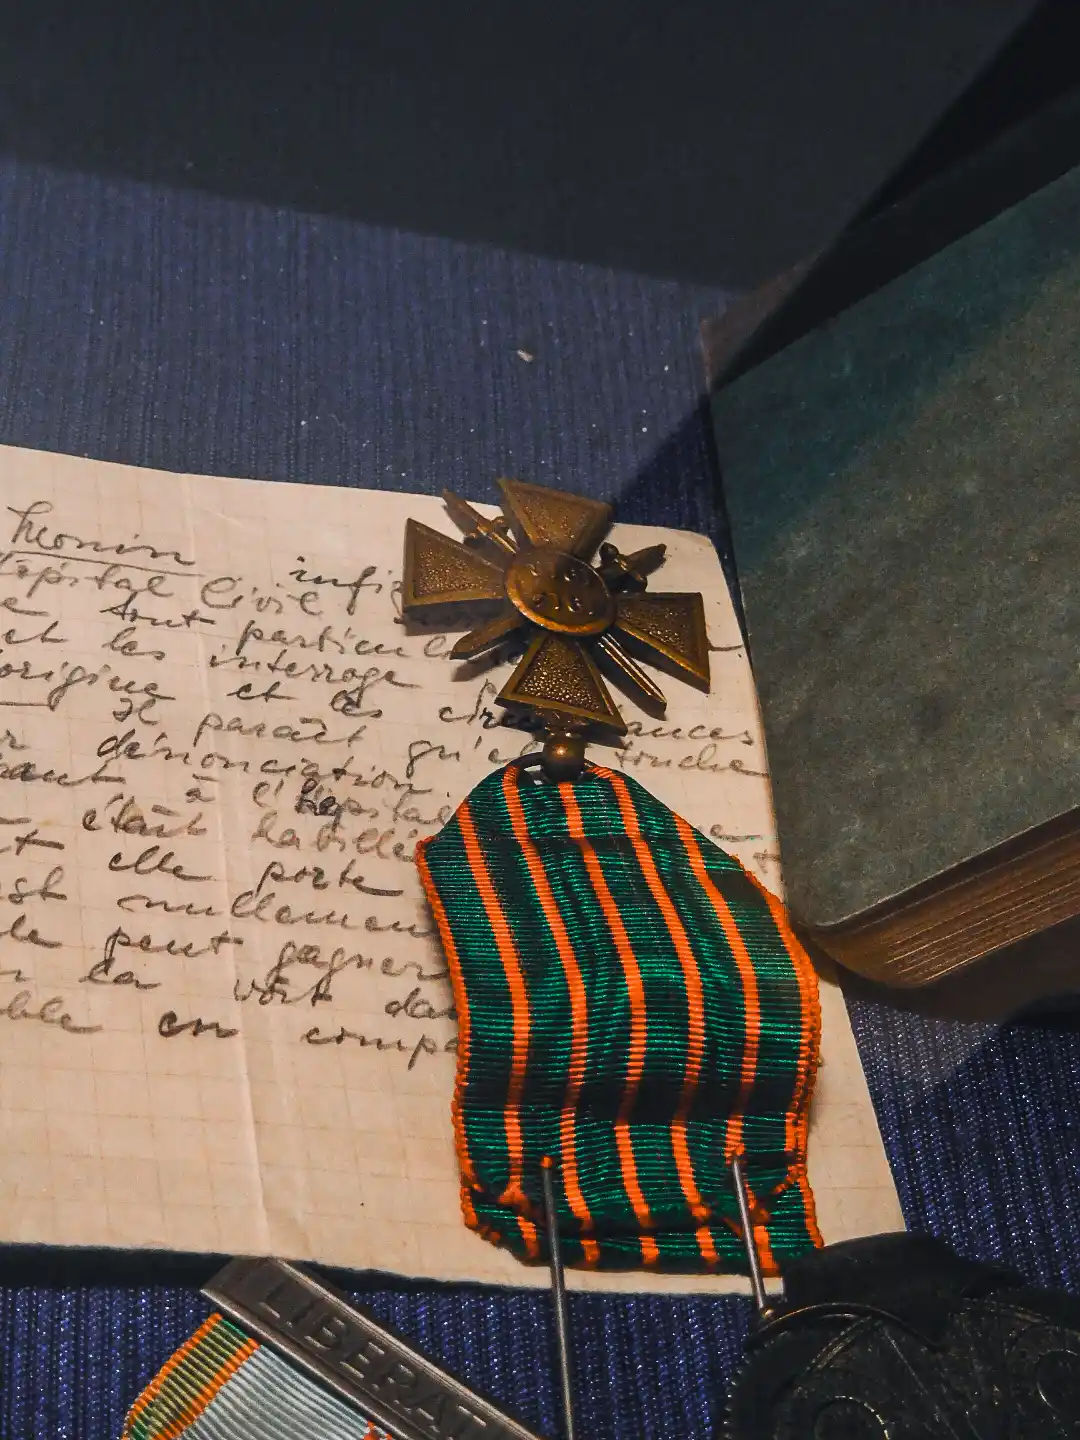 Monin infi
Hôpital Civil
e tout particul
et les interroge
origine et les circ ances
Il paraît qu'el touche
r dénonciation
ant à l'hôpital
était habillée e
t elle porte
est nullement
le peut gagner
la voit da
ble en compa
LIBERAT